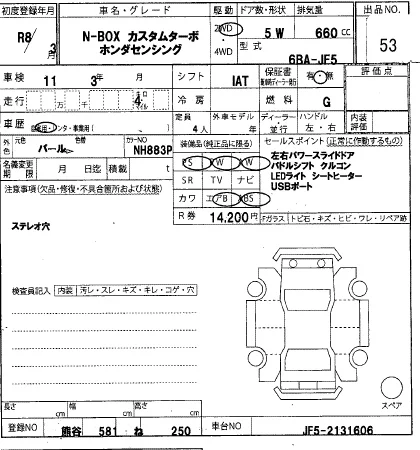 初度登録年月 車名・グレード 駆動 ドア数・形状 排気量 出品NO.
R8/3 N-BOX カスタムターボ 2WD 5W 660cc 53
月 ホンダセンシング 4WD 型式 6BA-JF5
車検 11 年 3 月 シフト IAT 保証書 有・無 評価点
走行 万 千 4 キロ マイル 冷房 燃料 G
車歴 自家用・レンタ・事業用( ) 定員 4人 外車モデル 年 ディーラー・並行 ハンドル 左・右 内装評価
外色 元色 パール 色替 カラーNO NH883P 装備品(純正品に限る) セールスポイント(正常に作動するもの)
名義変更期限 月 日迄 積載 t PS PW AW 左右パワースライドドア
パドルシフト クルコン
注意事項(欠品・修復・不具合箇所および状態) SR TV ナビ LEDライト シートヒーター
カワ エアB ABS USBポート
R券 14,200円 Fガラス トビ石・キズ・ヒビ・ワレ・リペア跡
ステレオ穴
検査員記入 内装 汚レ・スレ・キズ・キレ・コゲ・穴
スペア
長さ cm 幅 cm 高さ cm
登録NO 熊谷 581 ね 250 車台NO JF5-2131606